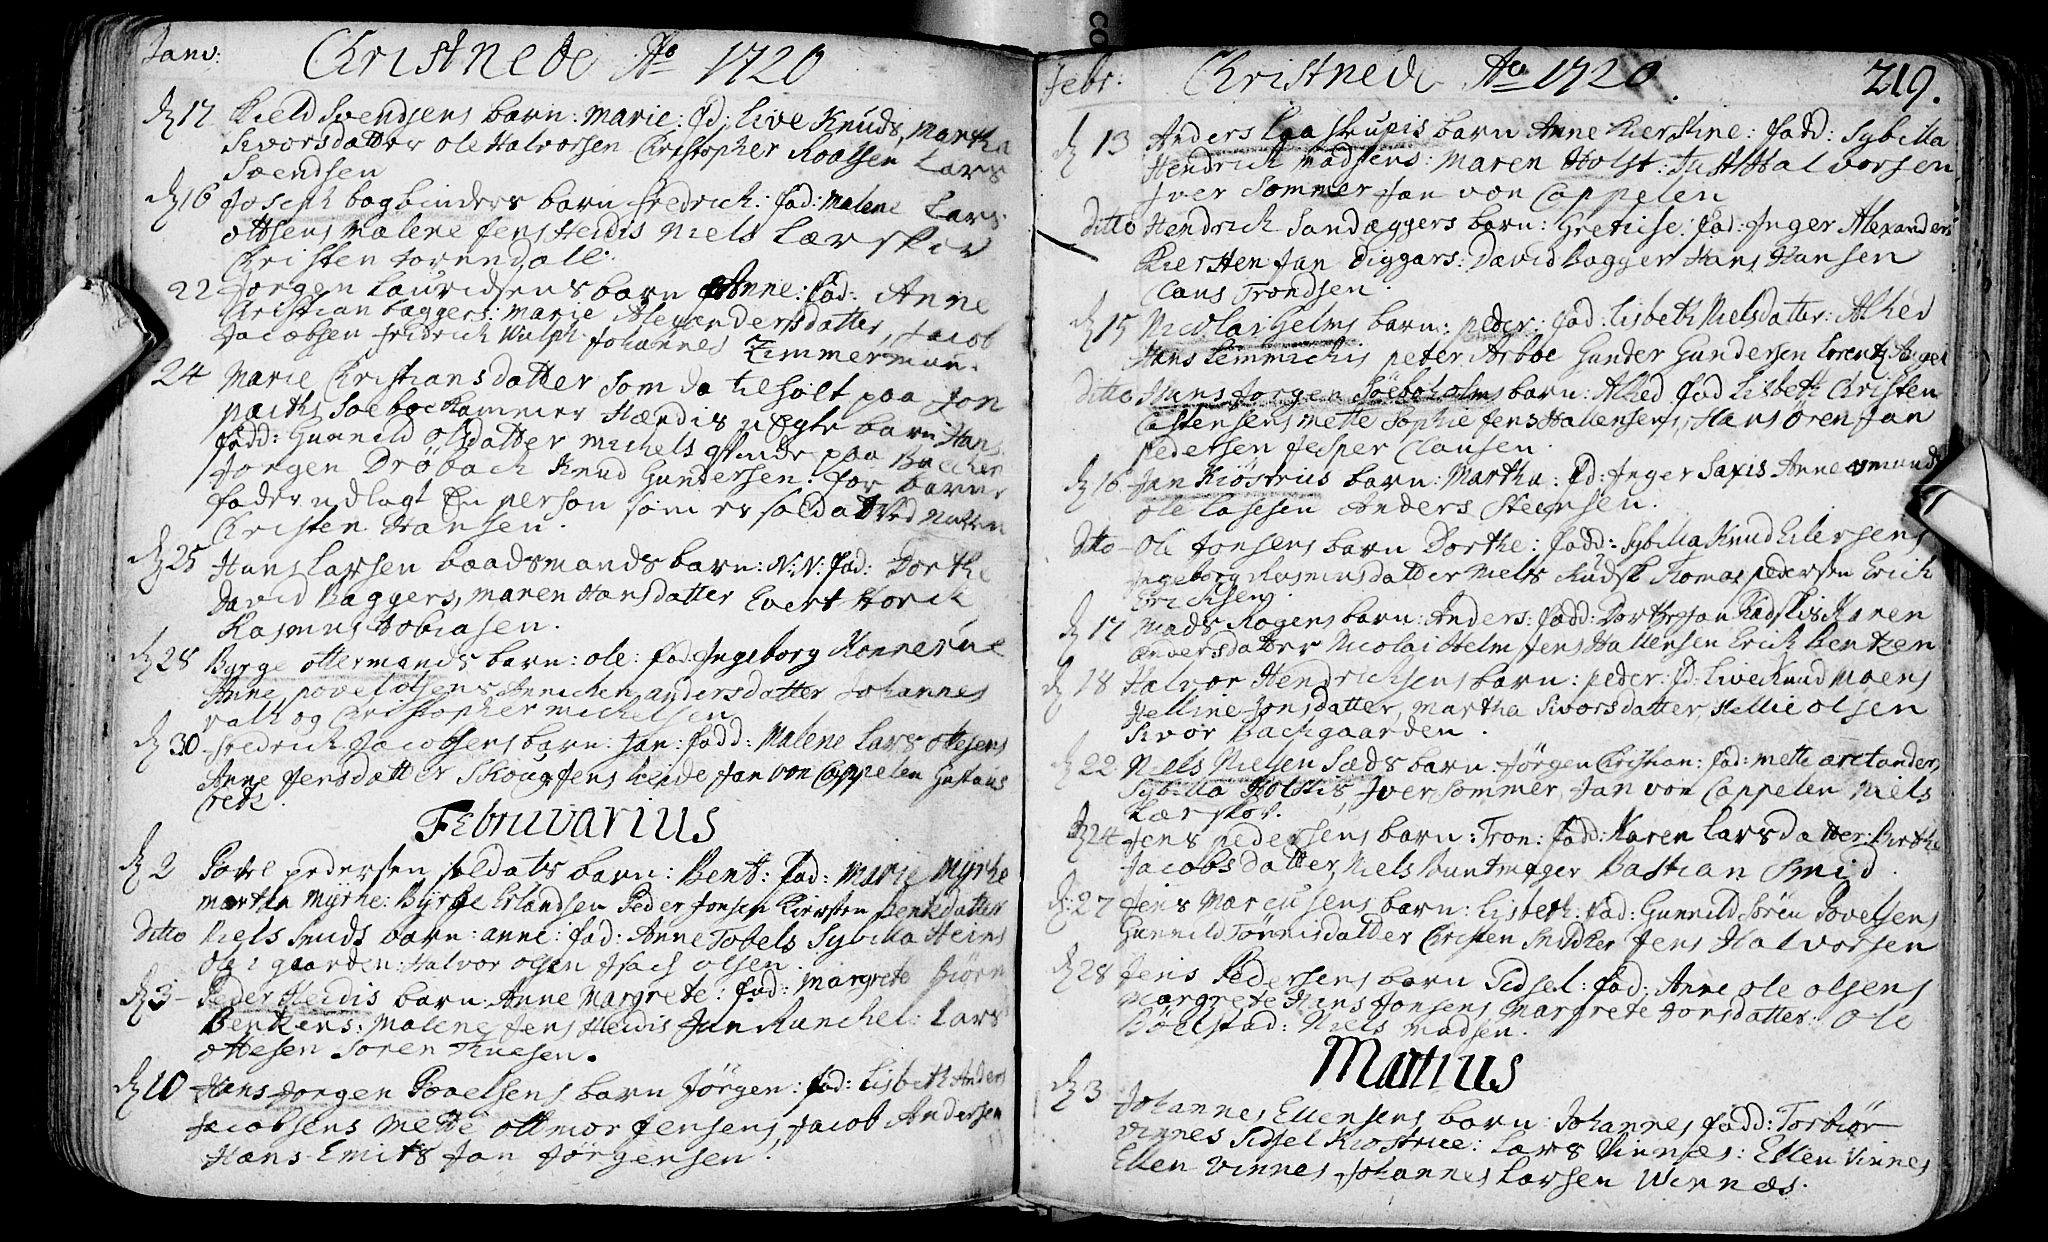 Janv: Christnede Ao 1720
d 17 Kield Svendsens barn: Marie: fd: Live Knuds, Martha
Siversdatter Ole Halvorsen Christopher Roalsen Lars
Svendsen
d 16 Joseph bogbinders barn Fredrich: fad: Malene Lars
Ottsens Malene Jens Heidis Niels Lærskov
Christen Torendall.
22 Jorgen Lauridsens barn Anne: fad: Anne
Christian baggers: Marie Alexandersdatter, Jacob
Jacobsen Fridrich Wulph Johannes Zimmerman.
24 Marie Christiansdatter som da tilholt paa Jon
fadd: Gunnild Olsdatter Michels qvinde paa
Jorgen Dröbach Knud Gundersen. for barne
fader udlagt En person som er soldat ved
Christen Hansen.
d 25 Hans Larsen baadsmands barn: N: N: fad: Dorthe
David Baggers, Maren Hansdatter Evert Borch
Rasmus Tobiasen.
d 28 Byrge Ottermands barn: Ole: fad: Ingeborg
Anne Povel Olsens Annichen Andersdatter Johannes
Falk og Christopher Michelsen
d 30 Fredrich Jacobsens barn: Jan: fadd: Malene Lars Ottesens
Anne Jensdatter Skougs Jens Heide Jan von Cappelen Gustavs
Februvarius
d 2 Povel pedersen soldats barn: Bent: fad: Marie Myrhe
Martha Myrhe: Byrge Erlandsen Peder Jonsen Kiersten Bentsdatter
Ditto Niels Smids barn: Anne: fad: Anne Tobels Sybilla Heins
Ole i gaarden: Halvor Olsen Isach Olsen.
d 3 Peder Heidis barn: Anne Margrete: fad: Margrete Biørn
Bentzens: Malene Jens Heidis Jan Runchel: Lars
Ottesen Soren Thuesen.
d 10 Hans Jorgen Povelsens barn Jørgen: fad: Lisbeth Anders
Jacobsens Mette Ottmor Jensens, Jacob Andersen
Hans Emits Jan Jörgensen.
Febr: Christnede Ao 1720. 219.
d 13 Anders Laastrupis barn Anne Kierstine: fadd: Sybilla
Hendrich Madsens: Maren Holst: Just Halvorsen
Iver Sommer Jan von Cappelen
Ditto Hendrich Sandæggers barn: Grethe: fad: Inger Alexanders
Kiersten Jan Diggars: David Bagger Hans Hansen
Claus Trondsen.
d 15 Nicolai Helms barn: Peder: fad: Lisbeth Nielsdatter: Alhed
Hans Lemmichis peter Arboe Gunder Gundersen Lorentz Angel
Ditto Hans Jorgen Söebohelms barn: Alhed fad Lisbeth Christen
Castensens Mette Sophie Jens Hallensens, Hans Oren Jan
Pedersen Jesper Clausen.
d 16 Jan Kiöstrius barn: Martha: fd: Inger Saxis Anne Omunds
Ole Lasesen Anders Steensen.
Ditto Ole Jonsens barn Dorthe: fadd: Sybilla Knud Eilersens
Ingeborg Rasmusdatter Niels Rudsk Thomas pedersen Erich
Erichsen.
d 17 Mads Rogens barn: Anders: fadd: Dorthe Jan Radskis Karen
Enversdatter Nicolai Helm Jens Hallensen Erich Bentzen
d 18 Halvor Hendrichsens barn: peder: fd: Live Knud Moens
Helline Jonsdatter, Martha Siversdatter, Hellie Olsen
Sivor Bachgaarden.
d 22 Niels Nielsen Sæds barn: Jörgen Christian: fad: Mette
Sybilla Holstis Iver Sommer, Jan von Cappelen Niels
Lærskov.
d 24 Jens pedersens barn: Tron: fadd: Karen Larsdatter: Birthe
Jacobsdatter, Niels Buntmager Bastian Smid.
d 27 Jens Marcusens barn: Lisbeth: fad: Gunnild Sören Povelsens
Gunnild Tönnisdatter Christen Snidker Jens Halvorsen
d 28 Jens Pedersens barn Sidsel: fad: Anne Ole Olsens
Margrete Hans Jonsens Margrete Jonsdatter: Ole
Bölestad: Niels Madsen.
Martius
d 3 Johannes Ellensens barn Johannes fadd: Torbiör
Vinnes Sidsel Kiostrue: Lars Vinnæs: Ellen Vinnes
Ellen Vinnes Johannes Larsen Winnæs.